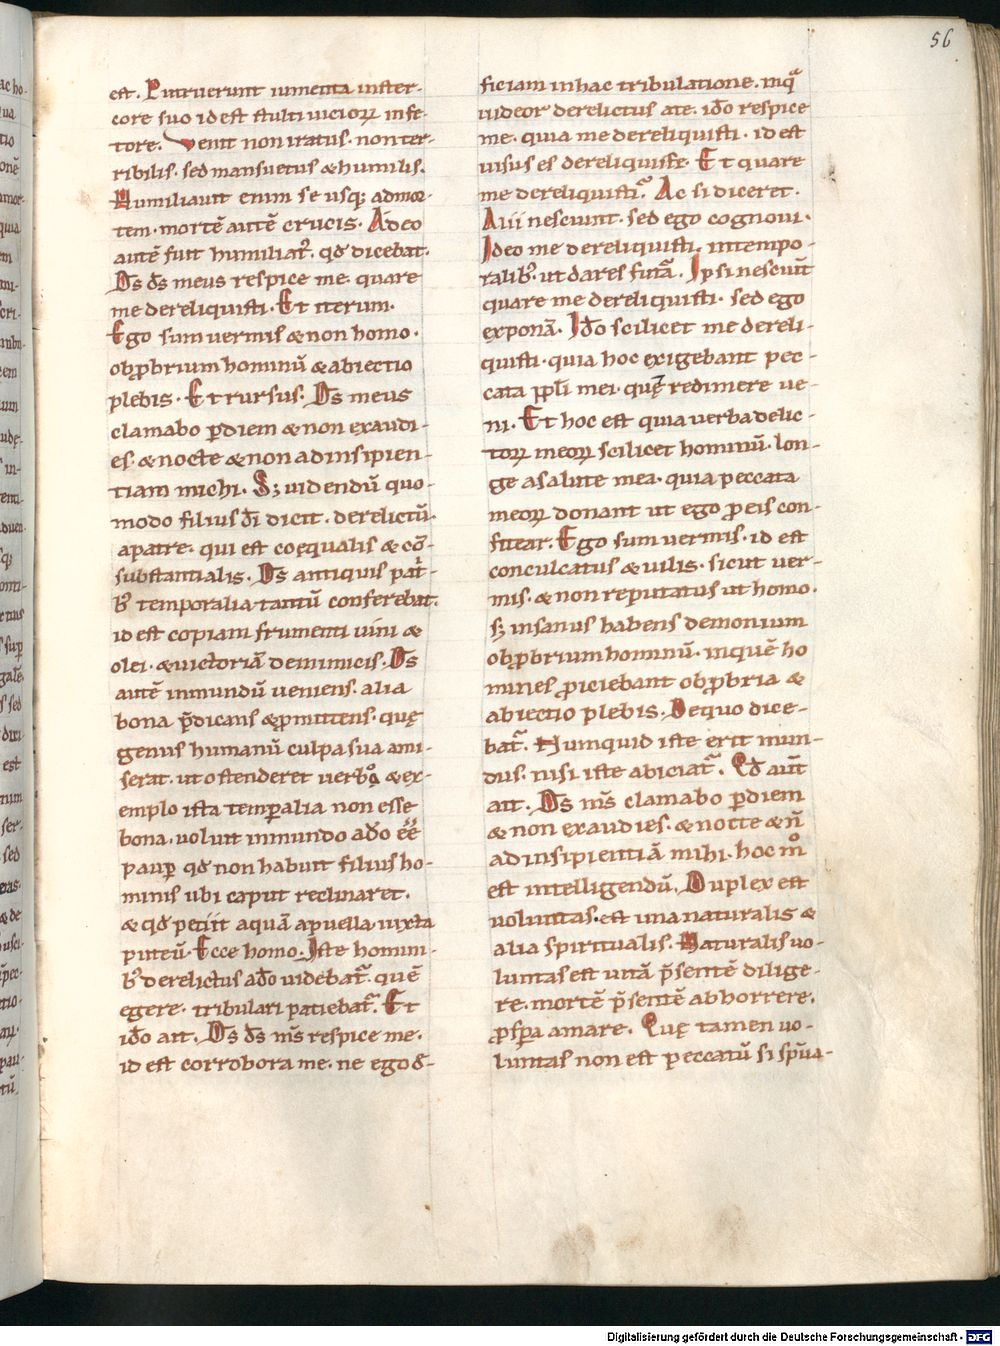 56
est. Putruerunt iumenta inster-
core suo id est stulti uicioꝝ infe-
tore. Uenit non iratus. non ter-
ribilis. sed mansuetus & humilis.
Humiliauit enim se usqꝫ admor-
tem. mortē autē crucis. Adeo
autē fuit humiliatᷣ. qđ dicebat.
Ds ds meus respice me. quare
me dereliquisti. Et iterum.
Ego sum uermis & non homo.
obꝓbrium hominū & abiectio
plebis. Et rursus. Ds meus
clamabo ꝑdiem & non exaudi-
es. & nocte & non adinsipien-
tiam michi. Sꝫ uidendū quo-
modo filius dī dicit. derelictū.
apatre. qui est coequalis & cō-
substantialis. Ds antiquis pat̓-
bꝰ temporalia tantū conferebat.
id est copiam frumenti uini &
olei. & uictoriā deinimicis. Ds
autē inmundū ueniens. alia
bona p̄dicans & ꝓmittens. quę
genus humanū culpa sua ami-
serat. ut ostenderet uerbo & ex-
emplo ista temꝑalia non esse
bona. uoluit inmundo adō ēē
pauꝑ qđ non habuit filius ho-
minis ubi caput reclinaret.
& qđ petiit aquā apuella iuxta
puteū. Ecce homo. Iste homini-
bꝰ derelictus adō uidebatᷣ. quē
egere. tribulari patiebatᷣ. Et
idō ait. Ds ds ms̄ respice me.
id est corrobora me. ne ego d-
ficiam inhac tribulatione. inqͣ
uideor derelictus ate. idō respice
me. quia me dereliquisti. id est
uisus es dereliquisse. Et quare
me dereliquisti. Ac si diceret.
Alii nesciunt. sed ego cognoui.
Ideo me dereliquisti. intempo-
ralibꝰ. ut dares futā. Ipsi nesciūt
quare me dereliquisti. sed ego
exponā. Idō scilicet me dereli-
quisti. quia hoc exigebant pec-
cata ppl̄i mei. quę redimere ue-
ni. Et hoc est quia uerba delic-
toꝝ meoꝝ scilicet hominū. lon-
ge asalute mea. quia peccata
meoꝝ donant ut ego ꝓ eis con-
fitear. Ego sum uermis. id est
conculcatus & uilis. sicut uer-
mis. & non reputatus ut homo.
sꝫ insanus habens demonium
obꝓbrium hominū. inquē ho
mines ꝓiciebant obꝓbria &
abiectio plebis. Dequo dice-
batᷣ. Numquid iste erit mun-
dus. nisi iste abiciatᷣ. Qđ aūt
ait. Ds ms̄ clamabo ꝑdiem
& non exaudies. & nocte & n̄
adinsipientiā mihi. hoc mͦ
est intelligendū. Duplex est
uoluntas. est una naturalis &
alia spiritualis. Naturalis uo-
luntas est uitā p̄sentē dilige-
re. mortē p̄sentē abhorrere.
ꝓsꝑa amare. Quę tamen uo-
luntas non est peccatū si sp̄ua-
Digitalisierung gefördert durch die Deutsche Forschungsgemeinschaft - DFG